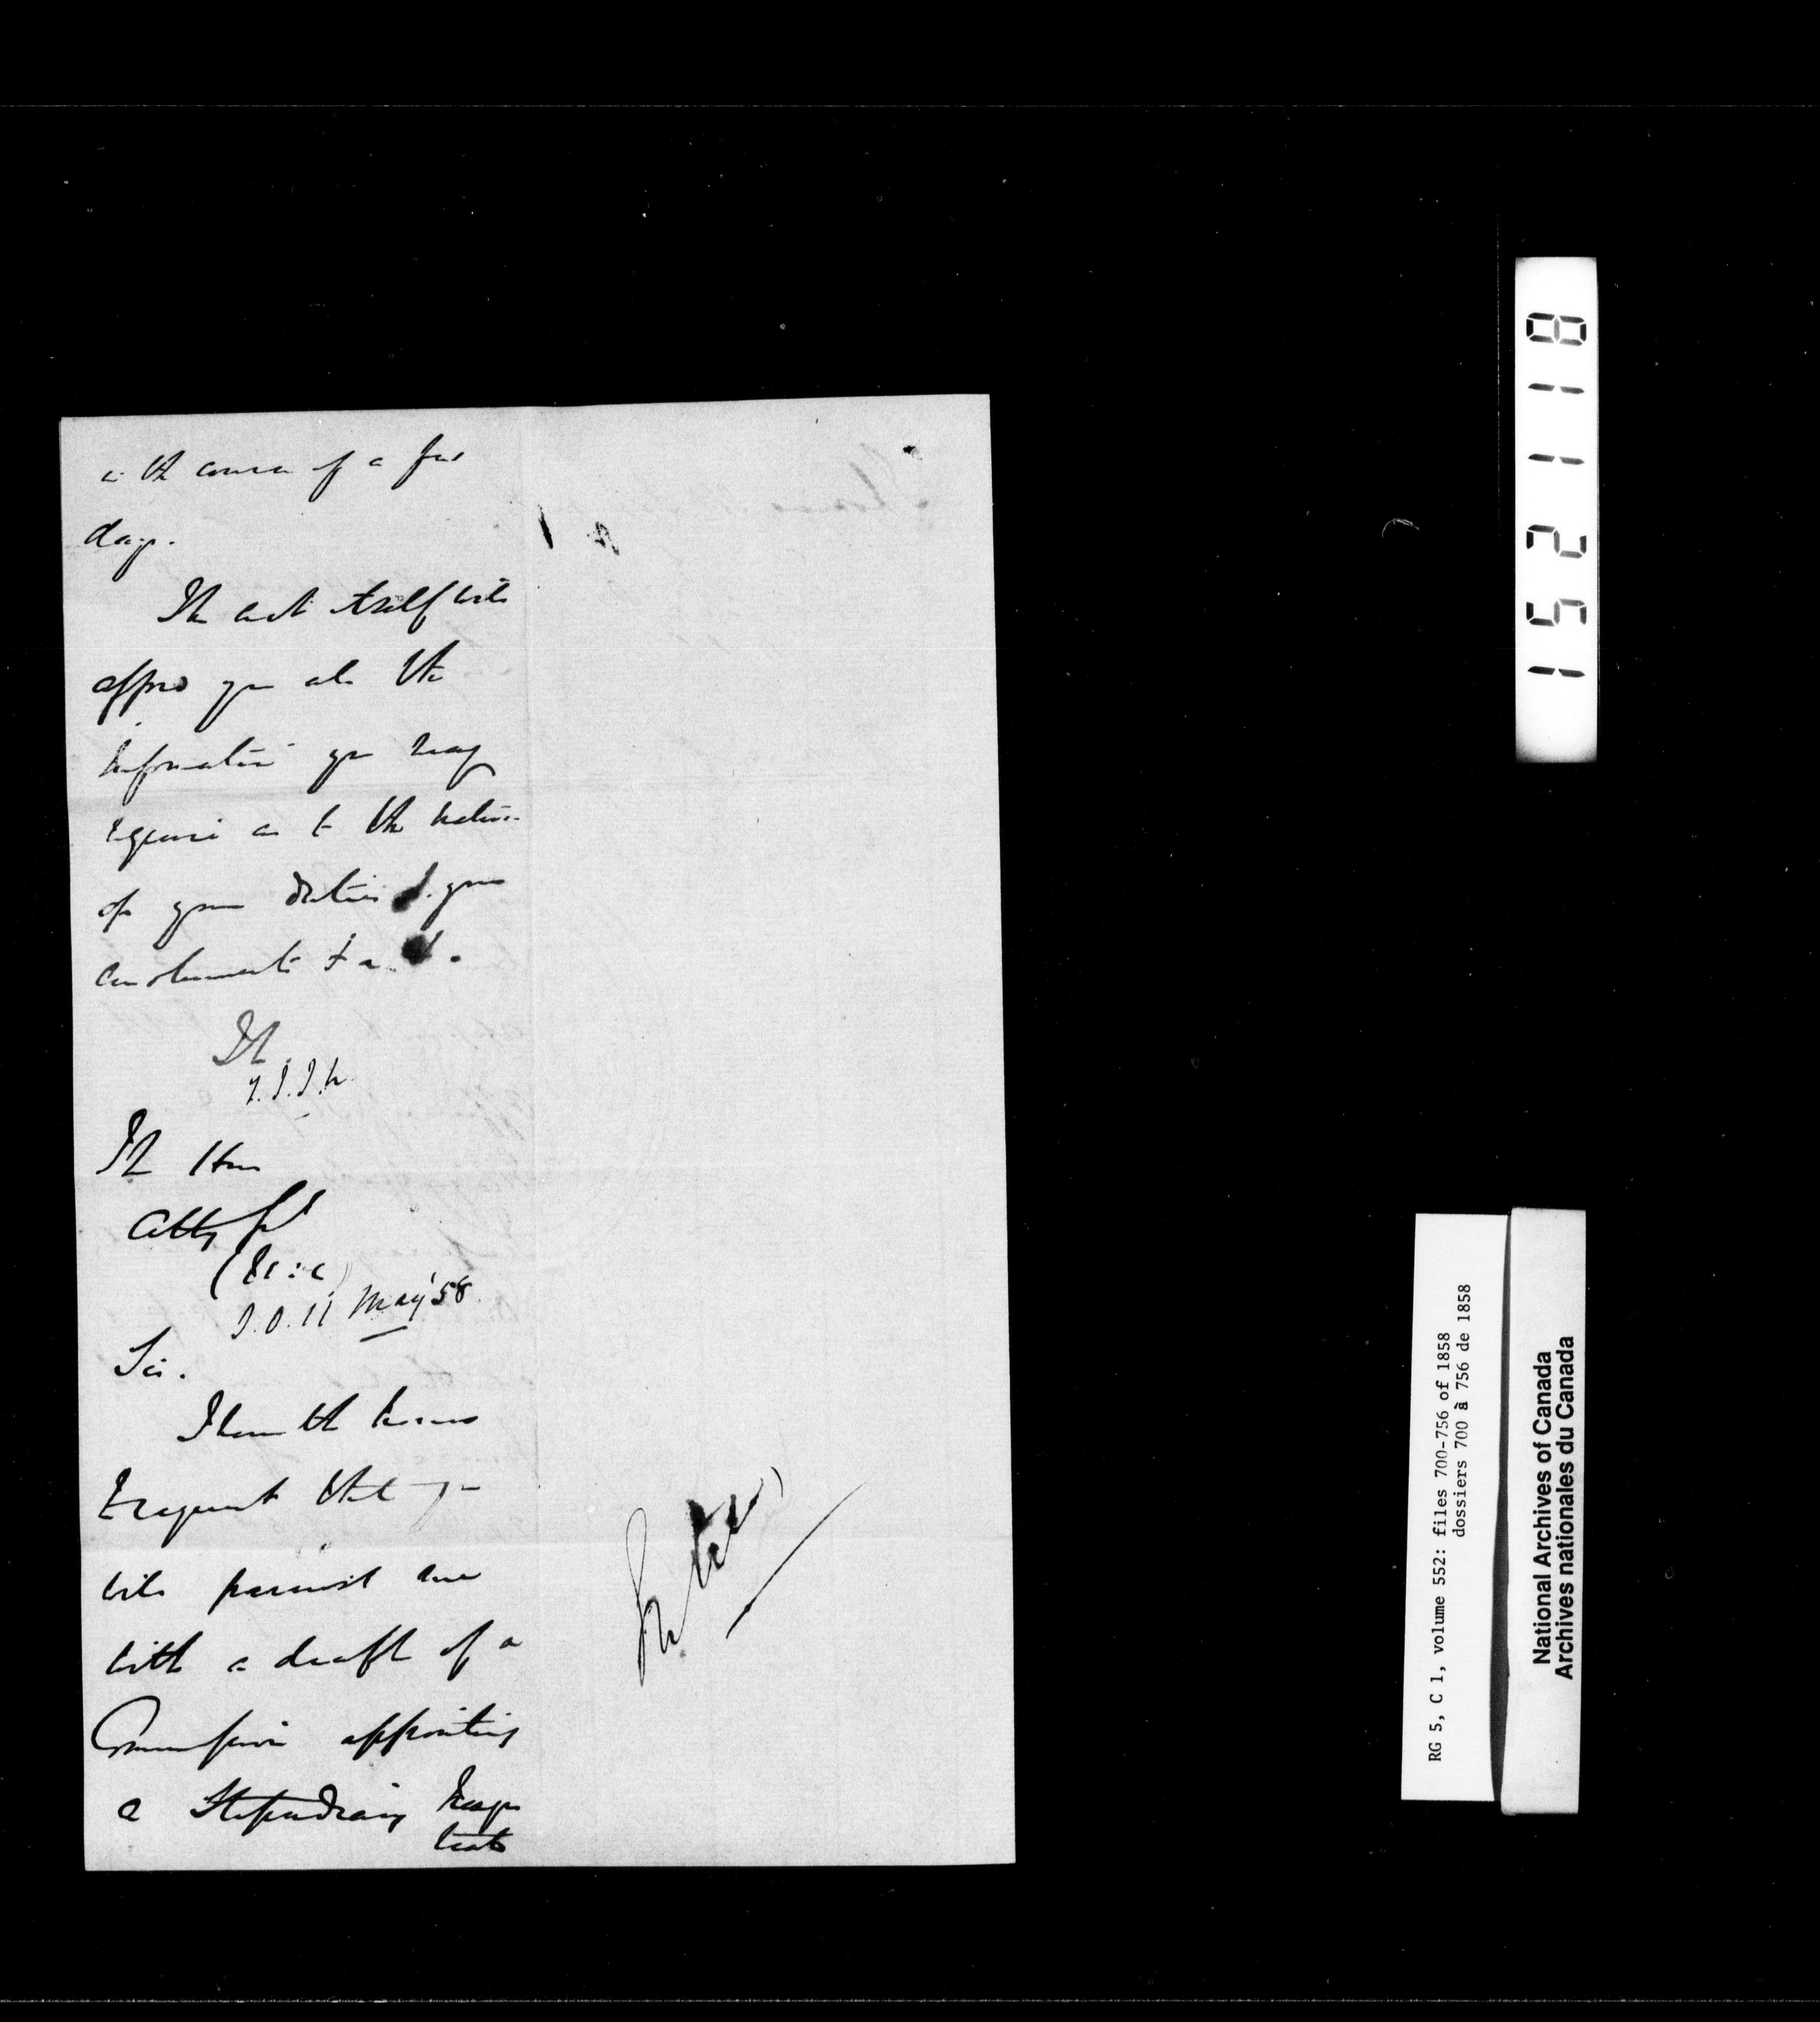 in the course of a few
days.
The act itself will
afford you all the
information you may
require as to the nature
of your duties & your
emoluments &a
The Hon
Atty Genl
S.O. 11 May '58
Sir.
I have the honor
to request that you
will furnish me
with a draft of a
Commission appointing
a Stipendiary Magis
trate
152118
RG 5, C 1, volume 552: files 700-756 of 1858
dossiers 700 à 756 de 1858
National Archives of Canada
Archives nationales du Canada